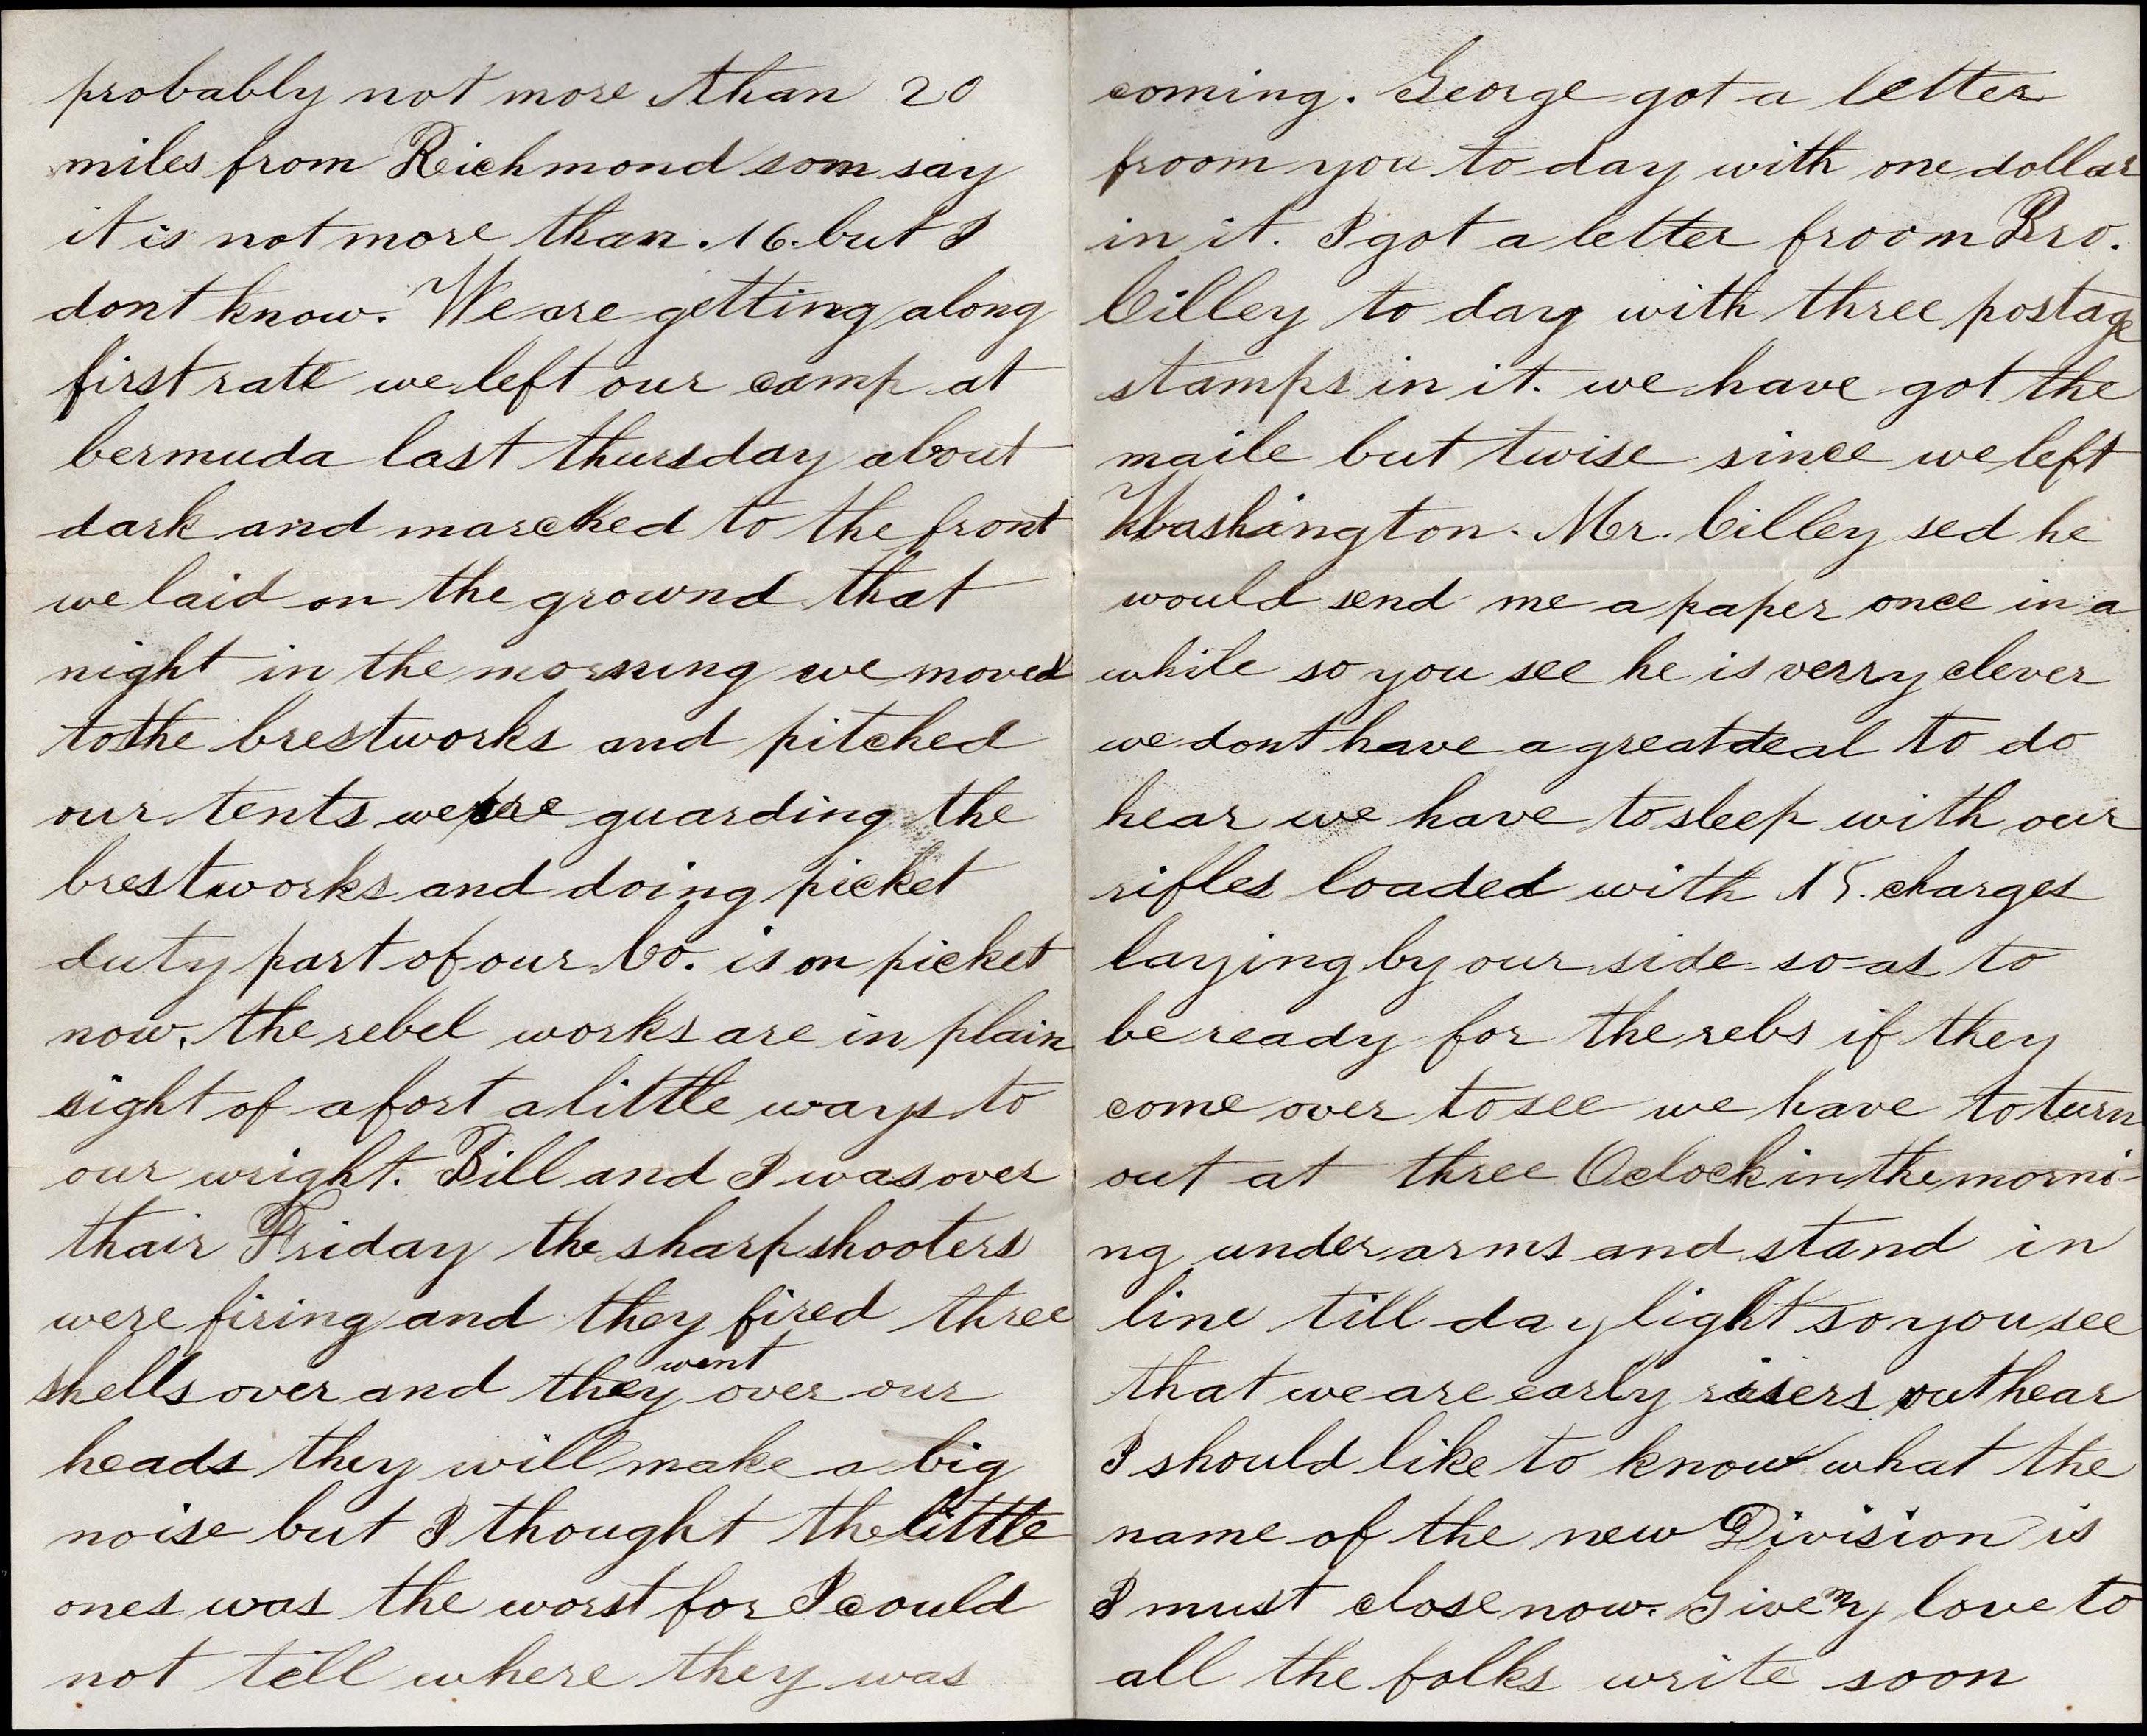 probably not more than 20
miles from Reichmond som say
it is not more than .16. but I
dont know. We are getting along
first rate we left our camp at
bermuda last thursday about
dark and marched to the front
we laid on the grownd that
night in the morning we moved
to the brestworks and pitched
our tents we are guarding the
brestworks and doing picket
duty part of our Co. is on picket
now. the rebel works are in plain
sight of a fort a little ways to
our wright. Bill and I was over
thair Friday the sharpshooters
were firing and they fired three
shells over and they went over our
heads they will make a big
noise but I thought the little
ones was the worst for I could
not tell where they was
coming. George got a letter
froom you to day with one dollar
in it. I got a letter froom Bro.
Cilley to day with three postage
stamps in it. we have got the
maile but twise since we left
Washington. Mr. Cilley sed he
would send me a paper once in a
while so you see he is verry clever
we dont have a great deal to do
hear we have to sleep with our
rifles loaded with 15. charges
laying by our side so as to
be ready for the rebs if they
come over to see we have to turn
out at three Oclock in the morni-
ng under arms and stand in
line till day light so you see
that we are early risers out hear
I should like to know what the
name of the new Division is
I must close now. Give my love to
all the folks write soon